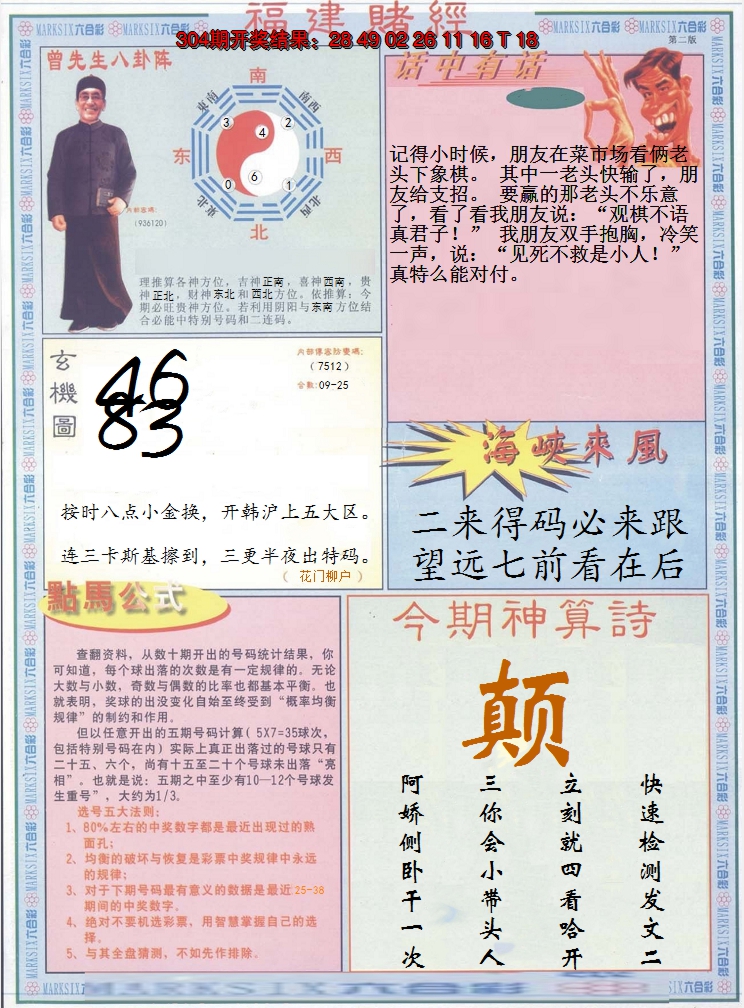 福建賭經
304期开奖结果：28 49 02 26 11 16 T 18
第二版
MARKSIX六合彩
曾先生八卦阵
南
東南
南西
3
2
4
东
西
6
0
1
東北
北西
北
(936120)
理推算各神方位，吉神正南，喜神西南，贵
神正北，财神东北和西北方位。依推算：今
期必旺贵神方位。若利用阴阳与东南方位结
合必能中特别号码和二连码。
话中有话
记得小时候，朋友在菜市场看俩老
头下象棋。 其中一老头快输了，朋
友给支招。 要赢的那老头不乐意
了，看了看我朋友说：“观棋不语
真君子！” 我朋友双手抱胸，冷笑
一声，说：“见死不救是小人！”
真特么能对付。
玄機圖
46
83
(7512)
合数:09-25
按时八点小金换，开韩沪上五大区。
连三卡斯基擦到，三更半夜出特码。
（ 花门柳户 ）
海峽來風
二来得码必来跟
望远七前看在后
點馬公式
查翻资料，从数十期开出的号码统计结果，你
可知道，每个球出落的次数是有一定规律的。无论
大数与小数，奇数与偶数的比率也都基本平衡。也
就表明，奖球的出没变化自始至终受到“概率均衡
规律”的制约和作用。
但以任意开出的五期号码计算( 5X7=35球次，
包括特别号码在内) 实际上真正出落过的号球只有
二十五、六个，尚有十五至二十个号球未出落“亮
相”。也就是说：五期之中至少有10—12个号球发
生重号”，大约为1/3。
选号五大法则：
1、80%左右的中奖数字都是最近出现过的熟
面孔；
2、均衡的破坏与恢复是彩票中奖规律中永远
的规律；
3、对于下期号码最有意义的数据是最近25-38
期间的中奖数字。
4、绝对不要机选彩票，用智慧掌握自己的选
择。
5、与其全盘猜测，不如先作排除。
今期神算詩
颠
快速检测发文二
立刻就四看哈开
三你会小带头人
阿娇侧卧干一次